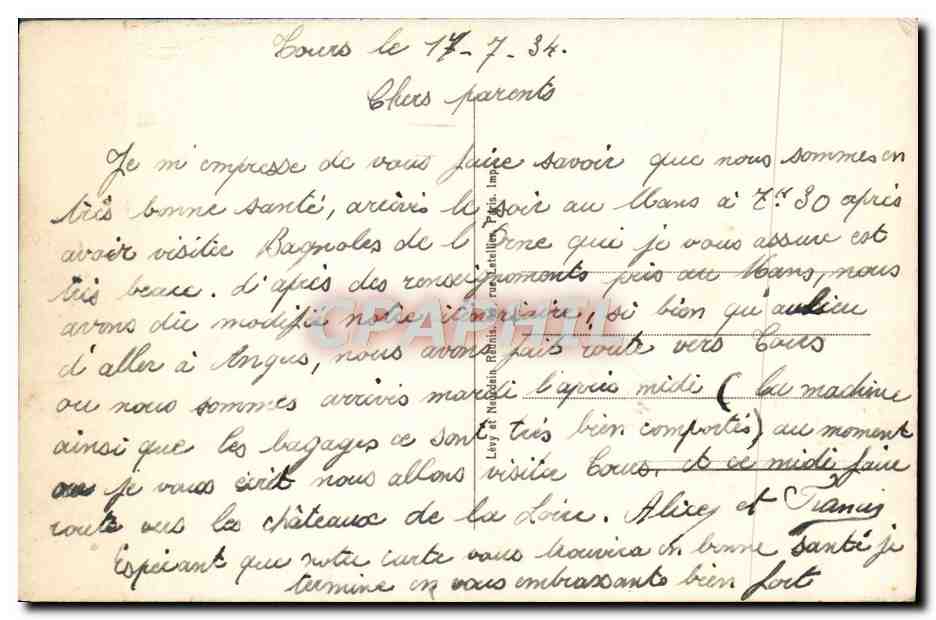 Tours le 17-7-34.
Chers parents
Je m'empresse de vous faire savoir que nous sommes en
très bonne santé, arrivés le soir au Mans à 7.H 30 après
avoir visitée Bagnoles de l'Orne qui je vous assure est
très beau. d'après des renseignements pris au Mans, nous
avons du modifié notre itinéraire, si bien qu'aulieu
d'aller à Angers, nous avons fait route vers Tours
ou nous sommes arrivés mardi l'après midi (la machine
ainsi que les bagages ce sont très bien comportés) au moment
ou je vous écrit nous allons visiter Tours. et ce midi faire
route vers les châteaux de la Loire. Alice et Francis
Espérant que notre carte vous trouvera en bonne santé je
termine en vous embrassants bien fort
Lévy et Neurdein Réunis, rue Letellier, Paris. Imp.
CPAPHIL